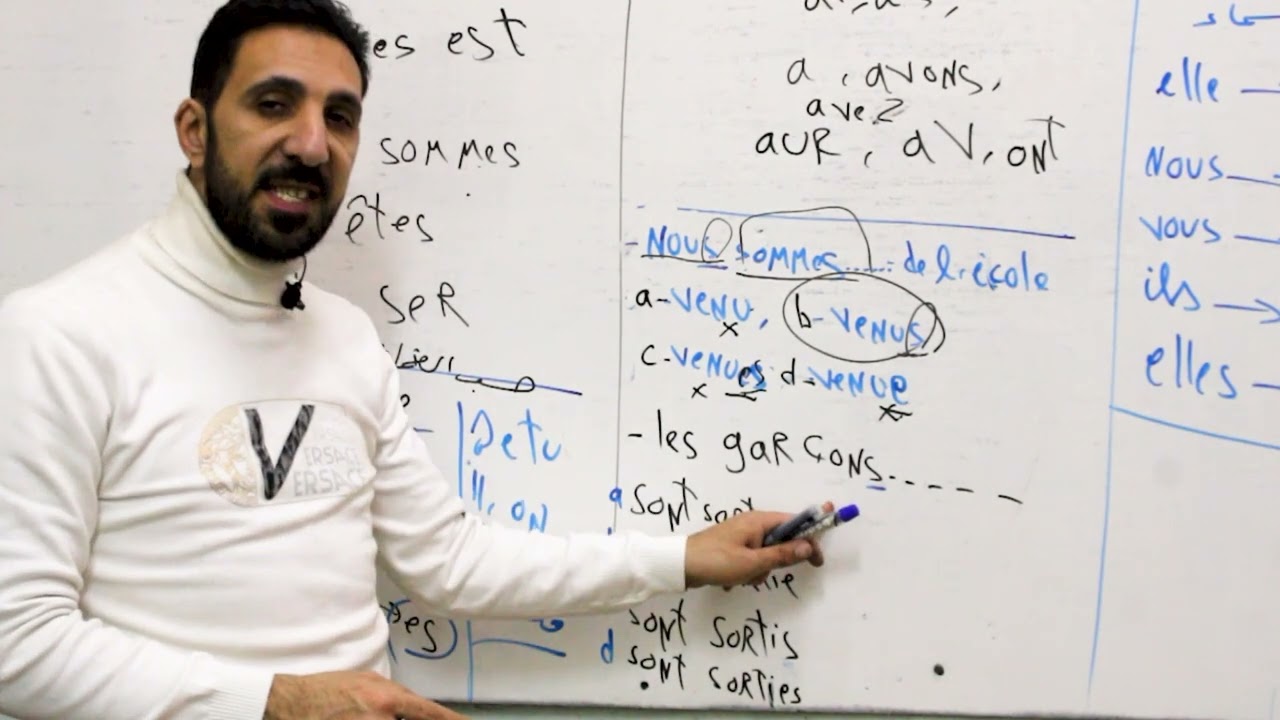 es est
sommes
êtes
SeR
Detu
Il, on
a, avons,
avez
aUR, aV, ont
- Nous sommes...... de l'école
a- venu, b- venus
x
c- venues es d- venue
x x
- les garçons. - - - - -
a sont sort
d sont sortis
sont sorties
elle
Nous
vous
ils →
elles
V
VERSACE